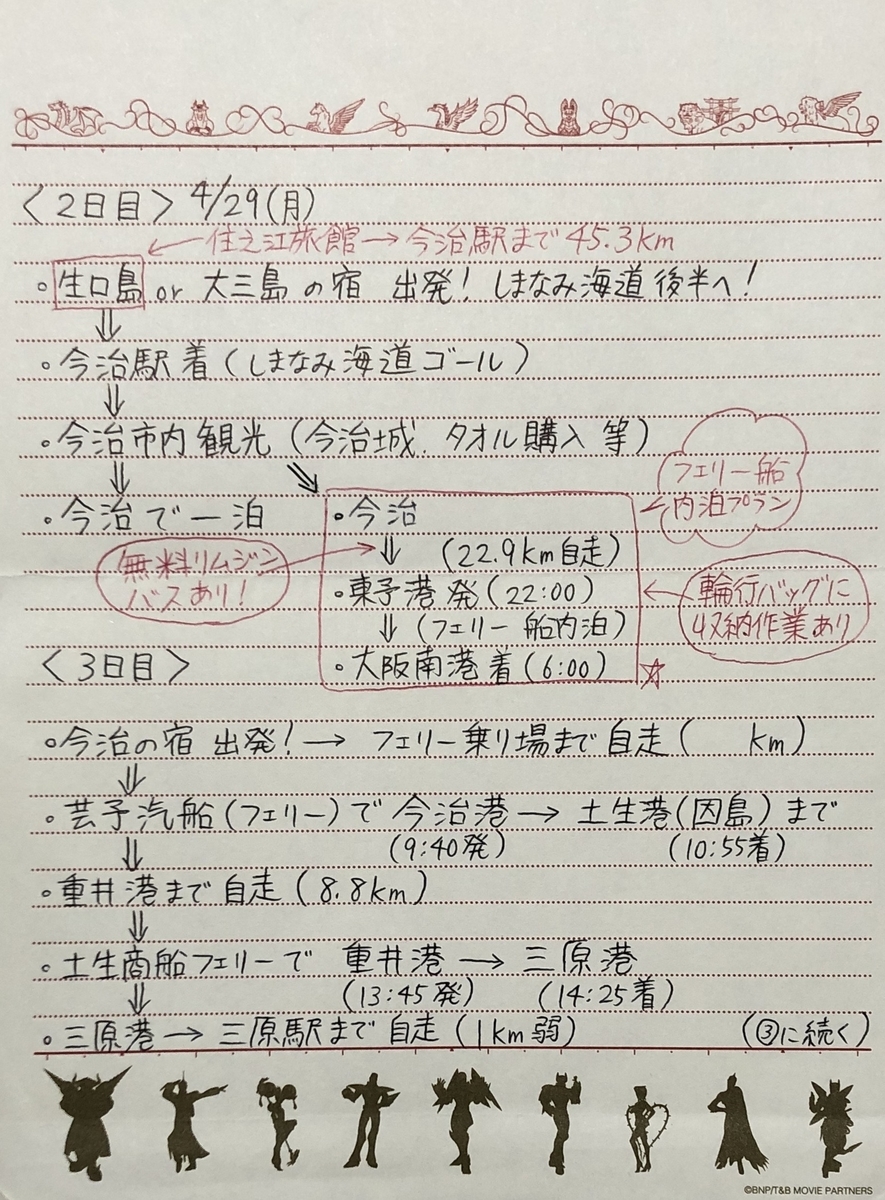 〈2日目〉4/29(月)
←住之江旅館→今治駅まで45.3km
・生口島 or 大三島の宿 出発！しまなみ海道後半へ！
⇓
・今治駅着(しまなみ海道ゴール)
⇓
・今治市内観光(今治城、タオル購入等)
⇓
フェリー船
内泊プラン
・今治で一泊
・今治
無料リムジン
バスあり！
⇓ (22.9km自走)
・東予港発(22:00)
輪行バッグに
収納作業あり
⇓(フェリー船内泊)
・大阪南港着(6:00) ☆
〈3日目〉
・今治の宿 出発！→ フェリー乗り場まで自走( km)
⇓
・芸予汽船(フェリー)で 今治港→ 土生港(因島)まで
(9:40発) (10:55着)
⇓
・重井港まで自走(8.8km)
⇓
・土生商船フェリーで 重井港→三原港
(13:45発) (14:25着)
⇓
・三原港→三原駅まで自走(1km弱) (③に続く)
©BNP/T&B MOVIE PARTNERS